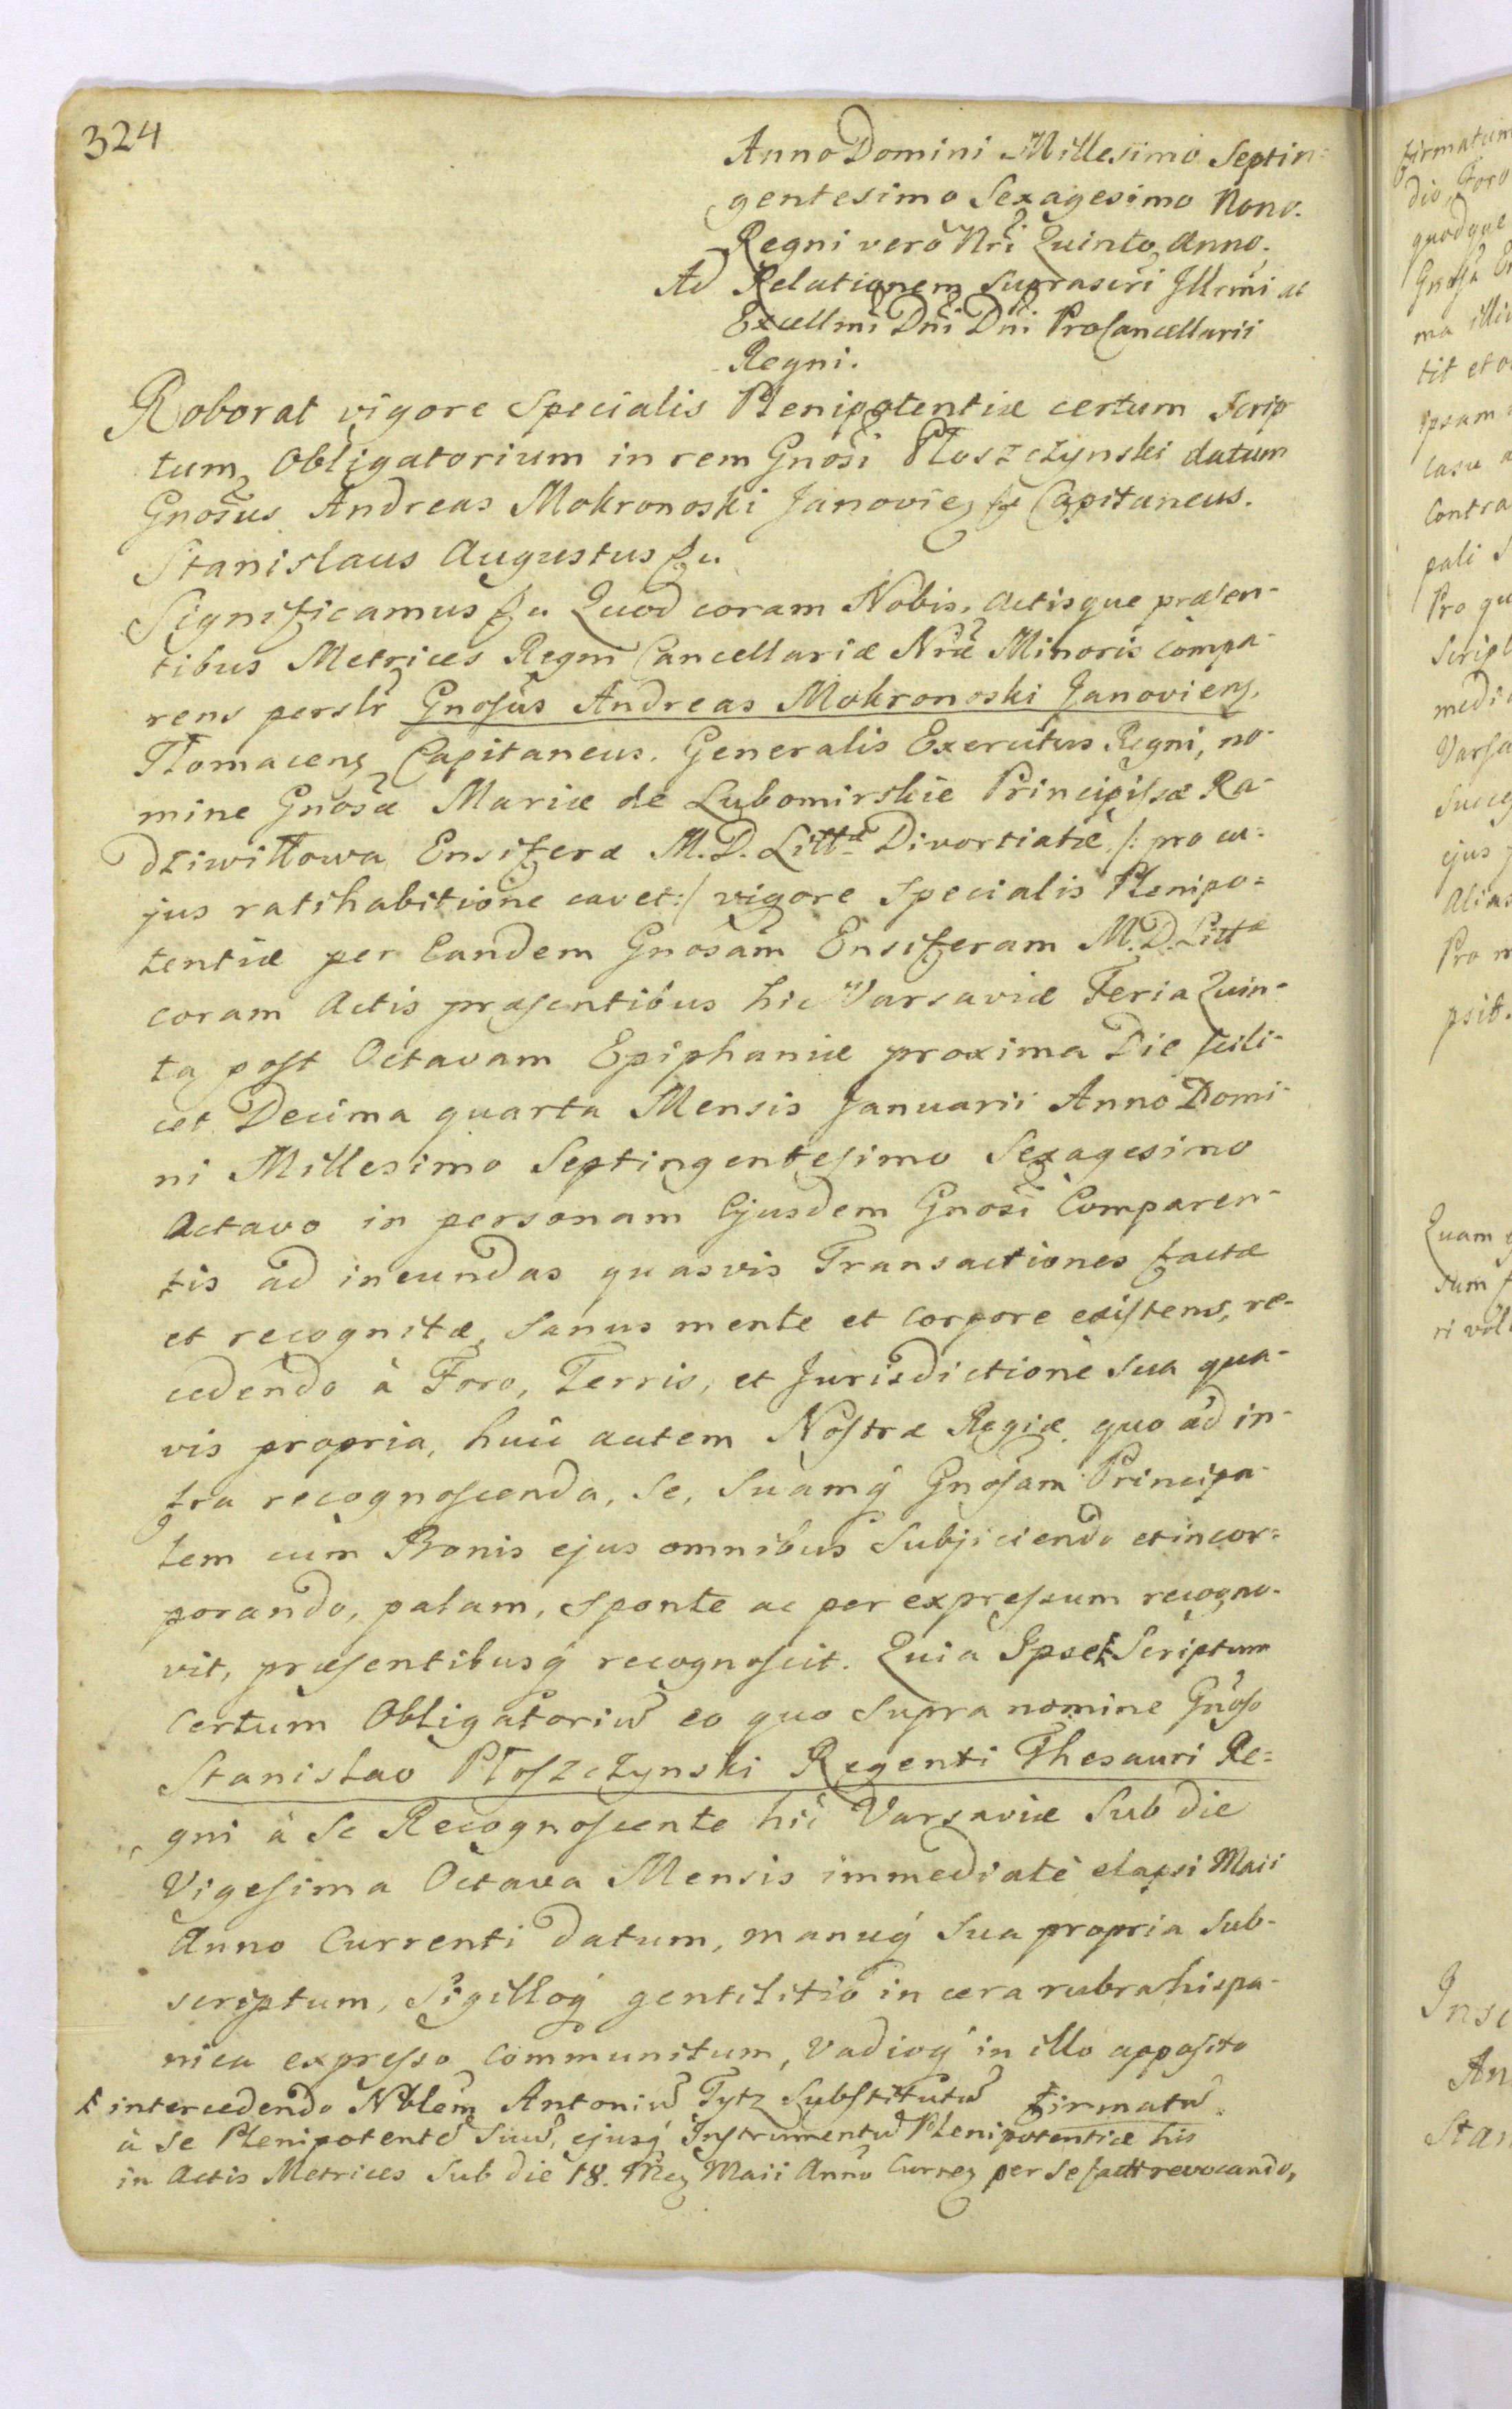 324
Anno Domini Millesimo Septin=
gentesimo Sexagesimo Nono.
Regni verò Nr̃i Quinto Anno.
Ad Relationem suprascri Illrm̃i ac
Excellm̃i Dñi Dñi ProCancellarii
Regni.
Roborat vigore Specialis Plenipotentiæ certum Scrip
tum Obligatorium in rem Gnosi Płoszczynski datum
Gnosus Andreas Mokronoski Janovien Capitaneus.
Stanislaus Augustus
Significamus Quod coram Nobis, Actisque præsen-
tibus Metrices Regni Cancellariæ Nræ Minoris compa-
rens perslr Gnosus Andreas Mokronoski Janoviens,
Tłomacens Capitaneus. Generalis Exercitus Regni, no-
mine Gnosæ Mariæ de Lubomirskie Principissæ Ra-
dziwiłłowa Ensiferæ M. D. Littæ Divortiatæ /: pro cu=
jus ratihabitione cavet :/ vigore Specialis Plenipo=
tentiæ per Eandem Gnosam Ensiferam M. D. Littæ
coram Actis præsentibus hic Varsaviæ Feria Quin-
ta post Octavam Epiphaniæ proxima Die scili-
cet Decima quarta Mensis Januarii Anno Domi-
ni Millesimo Septingentesimo Sexagesimo
Octavo in personam Ejusdem Gnosi Comparen-
tis ad ineundas quasvis Transactiones factæ
et recognitæ, Sanus mente et corpore existens, re-
cedendo à Foro, Terris, et Jurisdictione sua qua-
vis propria, huic autem Nostræ Regiæ quo ad in-
fra recognoscenda, se, Suamq́ Gnosam Principa-
lem cum Bonis ejus omnibus Subjiciendo et incor=
porando, palam, sponte ac per expressum recogno-
vit, præsentibusq́ recognoscit. Quia Ipse Ɫ Scriptum
certum Obligatoriũ eo quo supra nomine Gnoso
Stanislao Płoszczynski Regenti Thesauri Re=
gni à Se Recognoscente hic Varsaviæ Sub die
Vigesima Octava Mensis immediatè elapsi Maii
Anno Currenti datum, manuq́ Sua propria Sub-
scriptum, Sigilloq́ gentilitio in cera rubra hispa-
nica expresso communitum, Vadioq́ in illo apposito
Ɫ intercedendo Nblem Antoniũ Tytz Substitutũ firmatũ
à Se Plenipotentẽ Suũ, ejusq́ Instrumentũ Plenipotentiæ his
in Actis Metrices Sub die 18. Maii Anno Curren per se fact revocando,